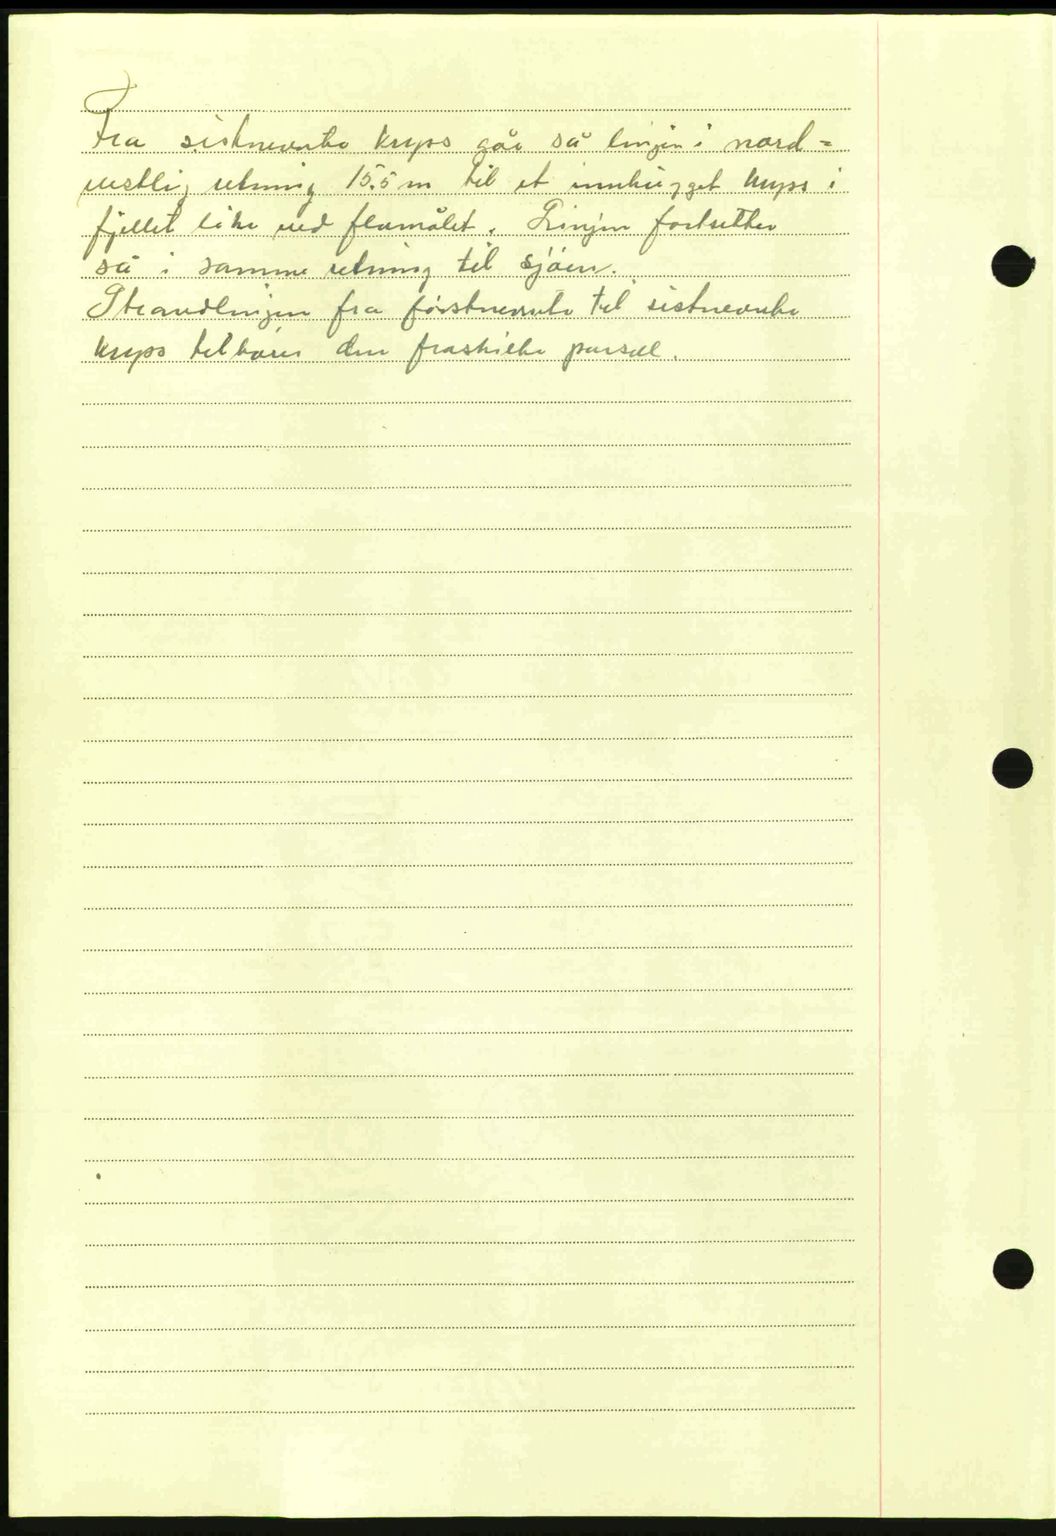 Fra sistnevnte kryss går så linjen i nord=
vestlig retning 15.5 m til et innhugget kryss i
fjellet like ved flomålet. Linjen fortsetter
så i samme retning til sjøen.
Strandlinjen fra førstnevnte til sistnevnte
kryss tilhører den fraskilte parsell.